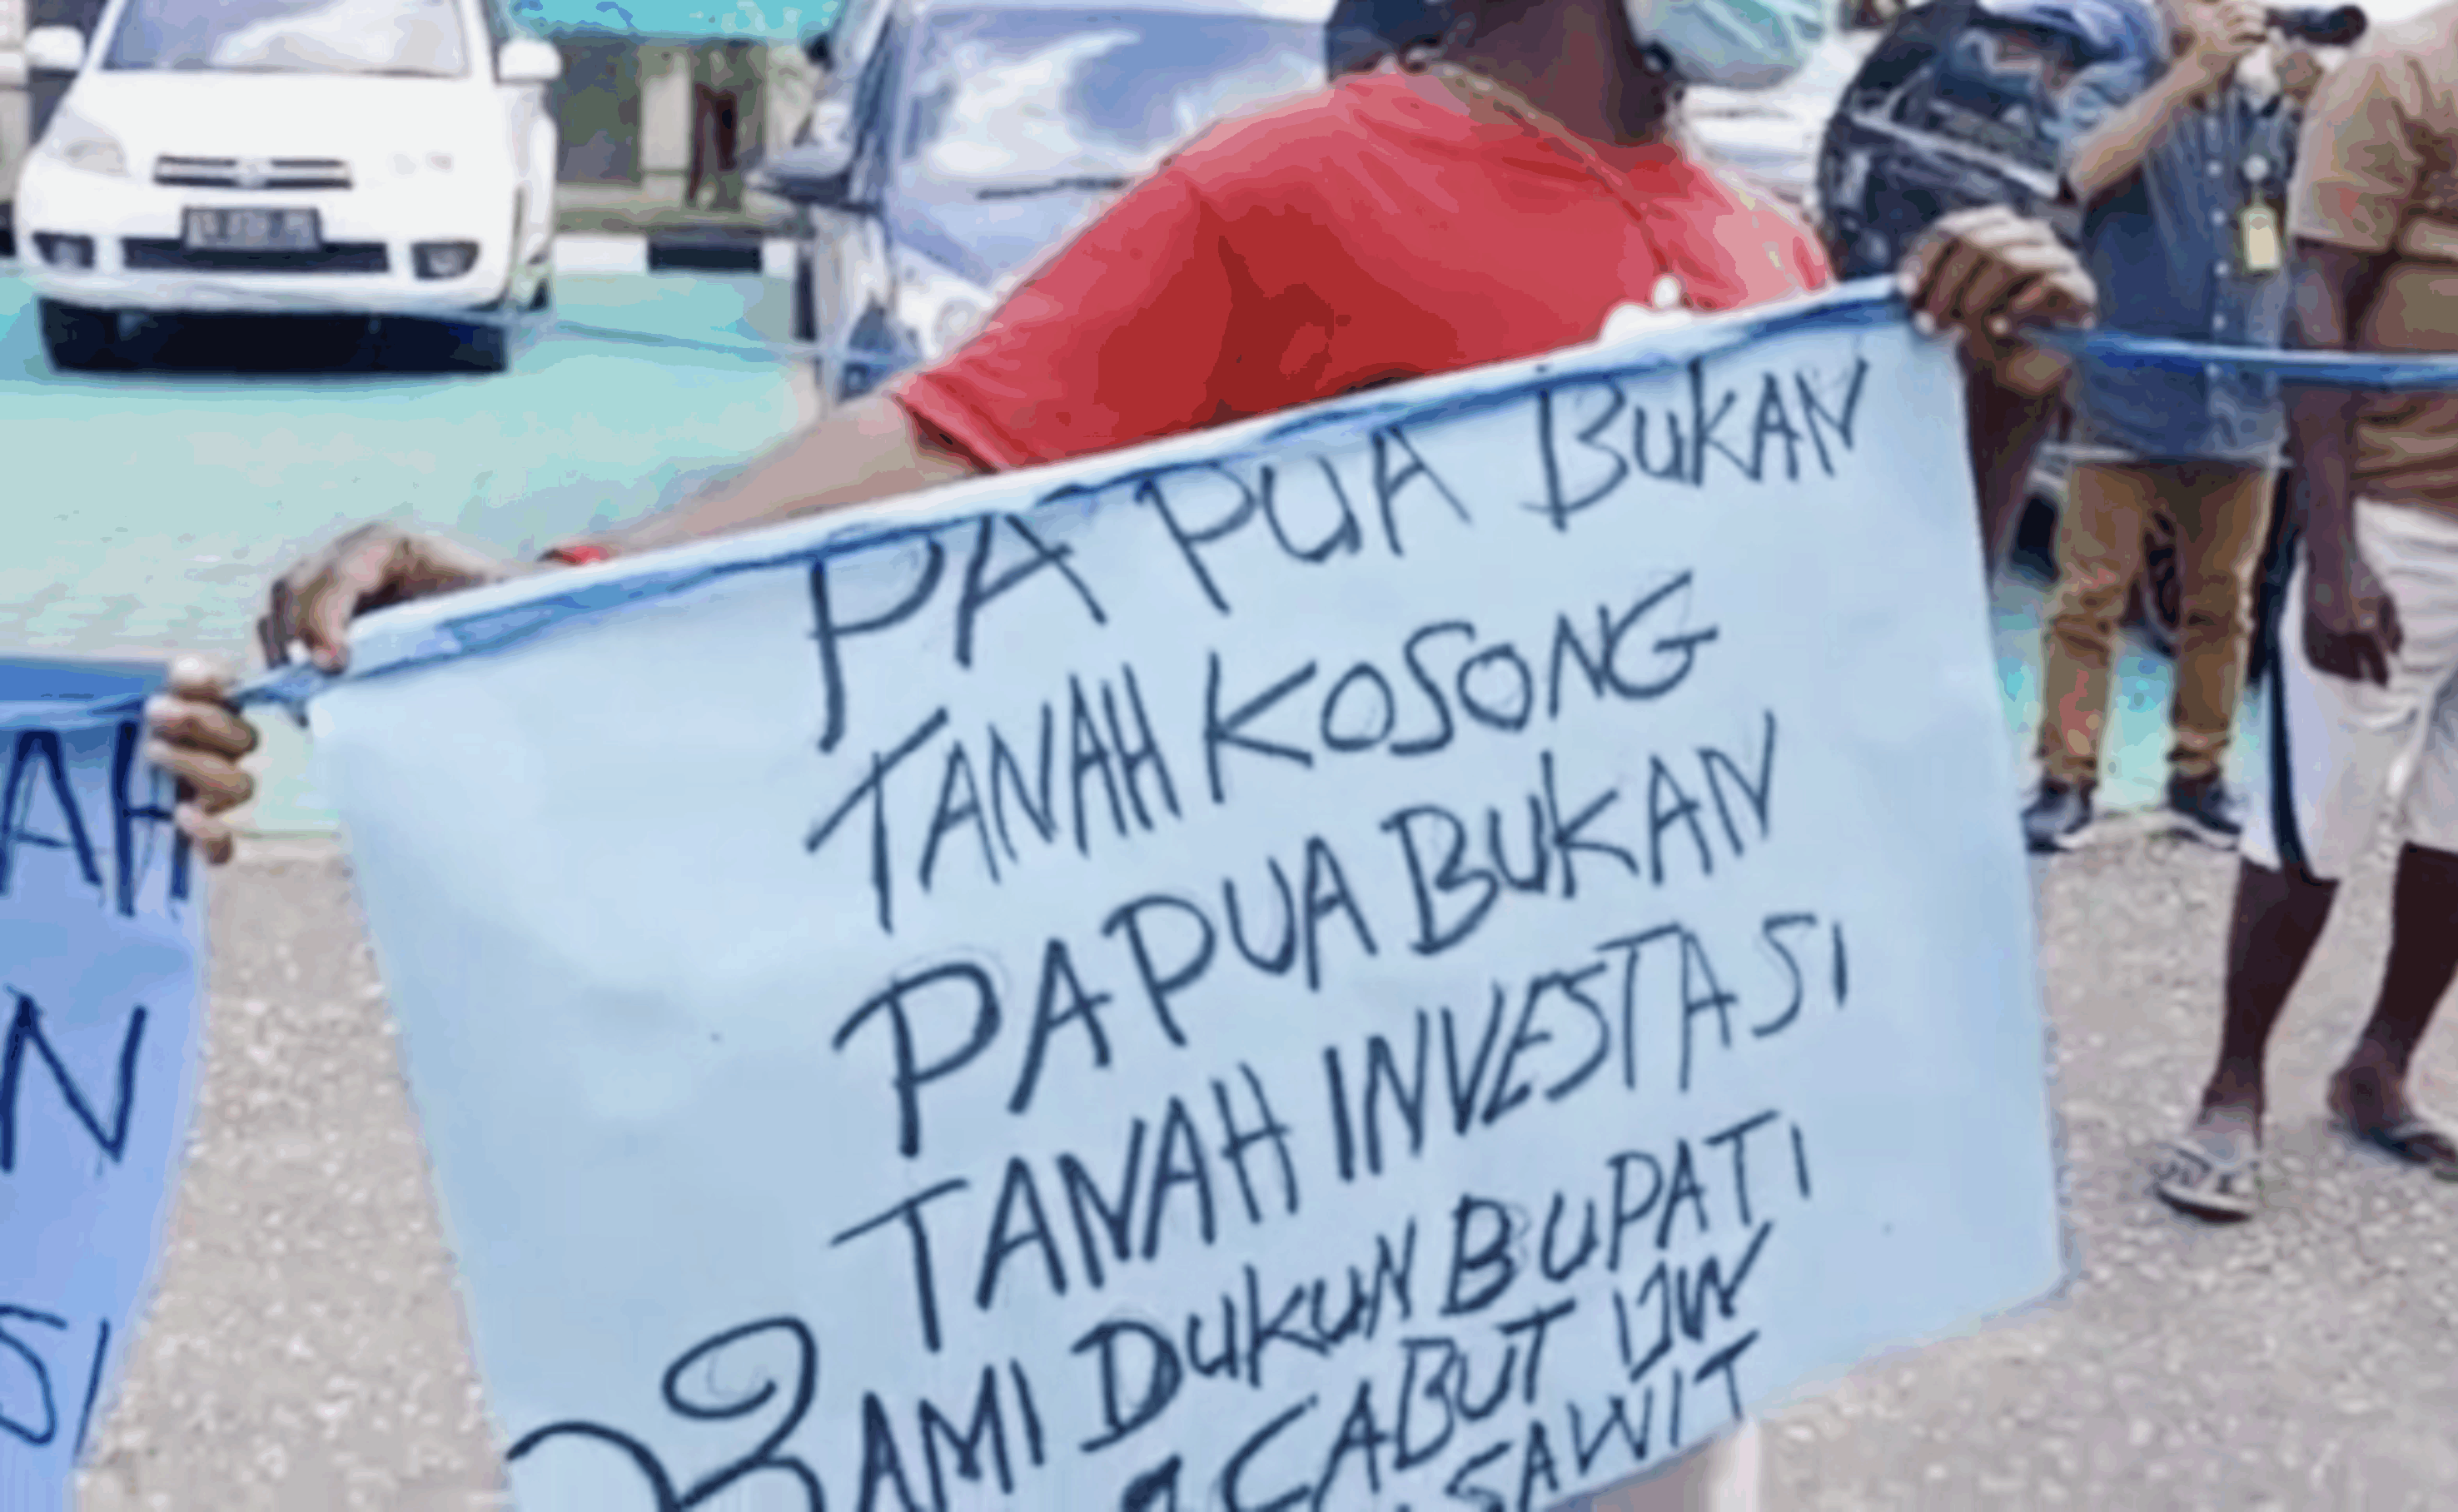 PAPUA BUKAN
TANAH KOSONG
PAPUA BUKAN
TANAH INVESTASI
KAMI DUKUN BUPATI
CABUT IJIN
SAWIT
AH
N
SI